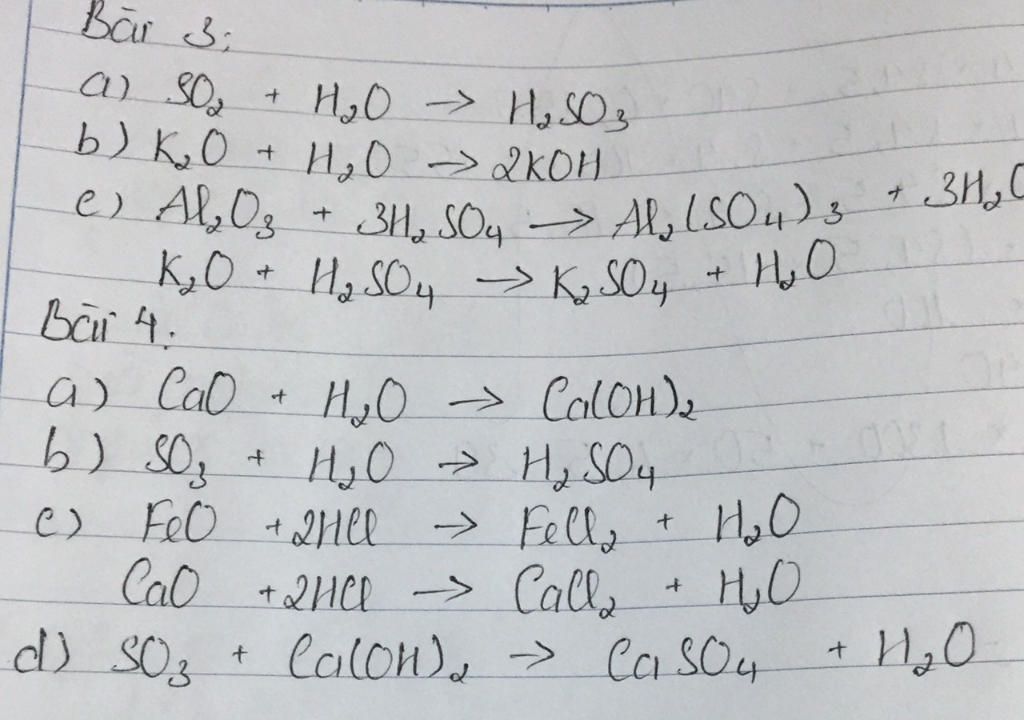 Bài 3:
a) SO₂ + H₂O → H₂SO₃
b) K₂O + H₂O → 2KOH
c) Al₂O₃ + 3H₂SO₄ → Al₂(SO₄)₃ + 3H₂O
K₂O + H₂SO₄ → K₂SO₄ + H₂O
Bài 4:
a) CaO + H₂O → Ca(OH)₂
b) SO₃ + H₂O → H₂SO₄
c) FeO + 2HCl → FeCl₂ + H₂O
CaO + 2HCl → CaCl₂ + H₂O
d) SO₃ + Ca(OH)₂ → CaSO₄ + H₂O